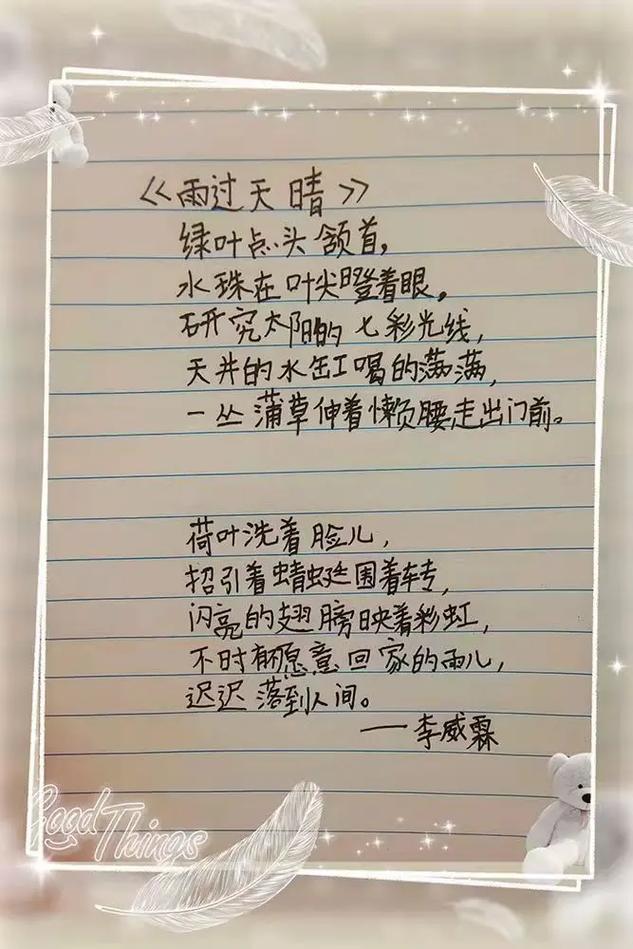 《雨过天晴》
绿叶点头颔首,
水珠在叶尖瞪着眼。
研究太阳的七彩光线,
天井的水缸喝的满满,
一丛蒲草伸着懒腰走出门前。
荷叶洗着脸儿,
招引着蜻蜓围着转,
闪亮的翅膀映着彩虹,
不时有不愿意回家的雨儿,
迟迟落到人间。
——李威霖
Good Things